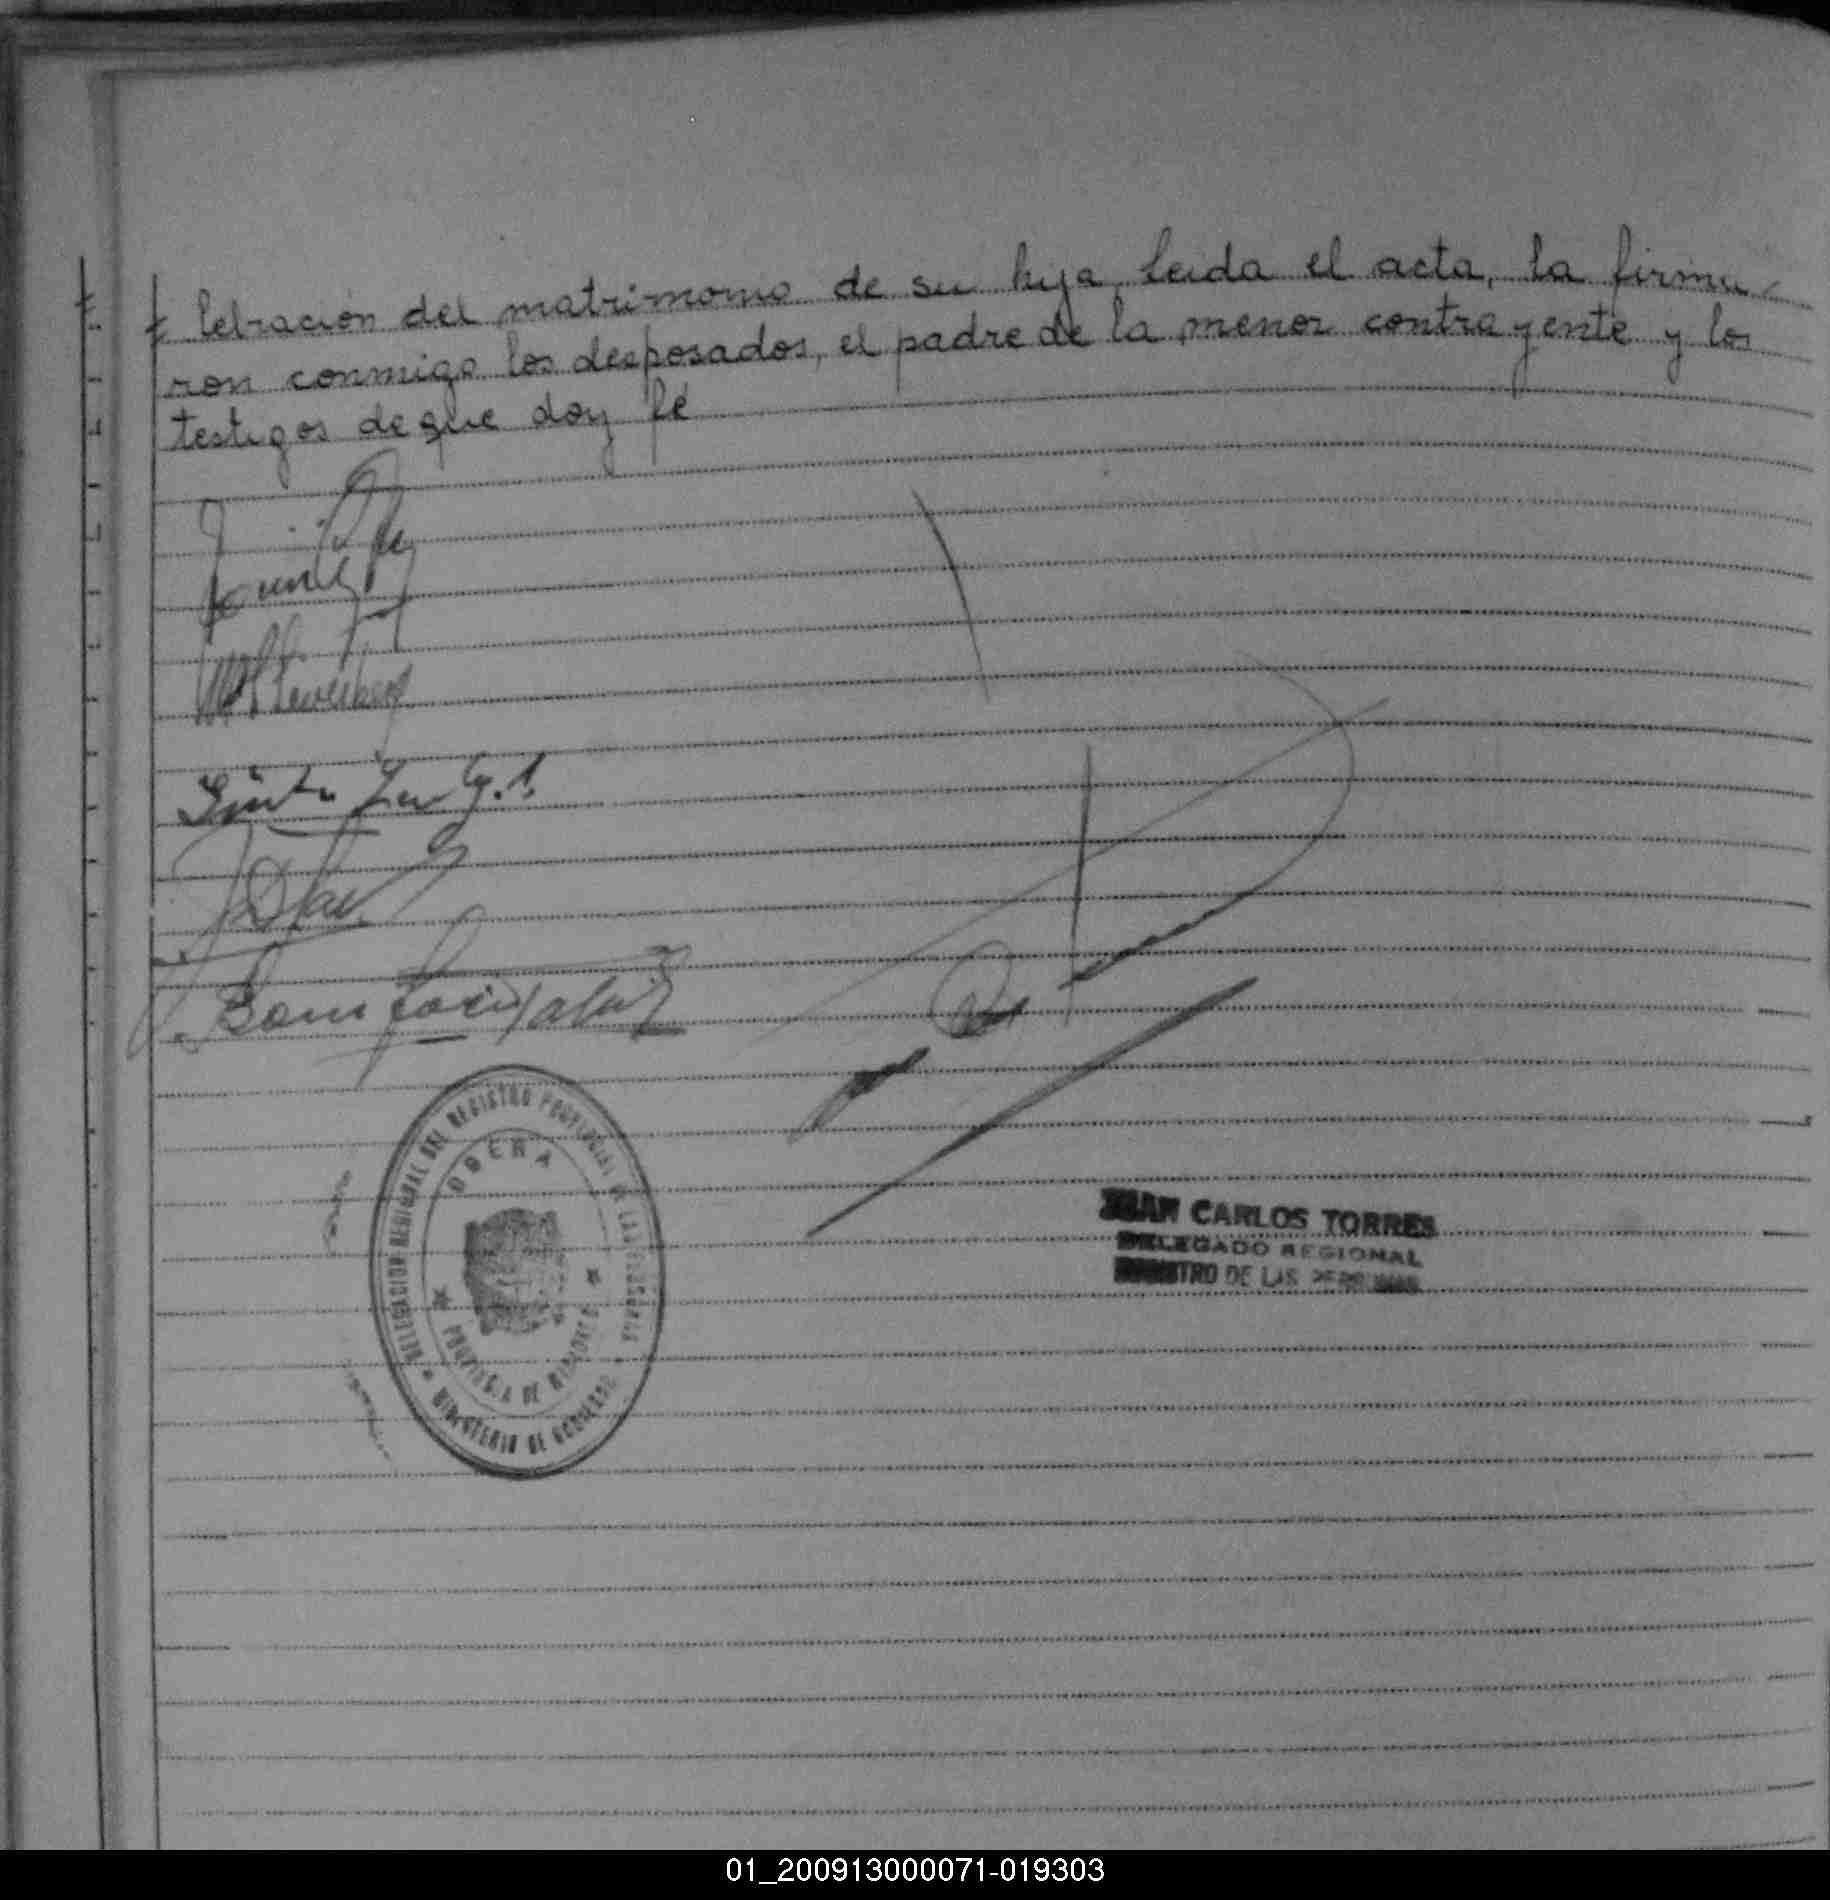 lebración del matrimonio de su hija, leída el acta, la firma-
ron conmigo los desposados, el padre de la menor contrayente y los
testigos de que doy fé
DELEGACION REGIONAL DEL REGISTRO PROVINCIAL DE LAS PERSONAS
OBERA
PROVINCIA DE MISIONES
MINISTERIO DE GOBIERNO
JUAN CARLOS TORRES
DELEGADO REGIONAL
REGISTRO DE LAS PERSONAS
01_200913000071-019303